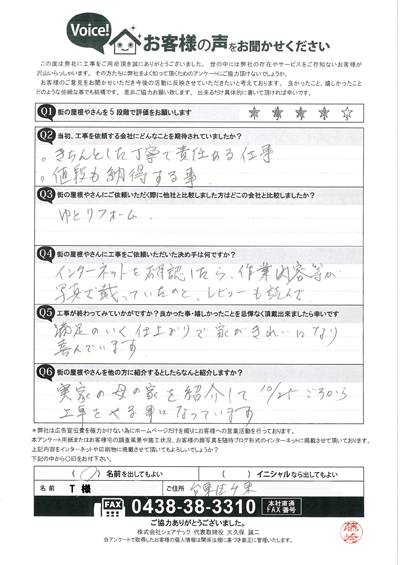 Voice!
お客様の声をお聞かせください
この度は弊社に工事をご用命頂き誠にありがとうございました。世の中には弊社の存在やサービスをご存知ないお客様が
沢山いらっしゃいます。その方たちに弊社をよく知って頂くためのアンケートにご協力頂けないでしょうか。
お客様のご意見をお聞かせいただき今後の活動に反映させていただきたいと考えております。良かったこと、嬉しかったこと
どのような些細な事でも結構です。是非ご協力お願い致します。出来るだけ具体的に書いて頂ければ幸いです。
Q1 街の屋根やさんを5段階で評価をお願いします ★ ★ ★ ★ ☆
Q2 当初、工事を依頼する会社にどんなことを期待されていましたか?
。きちんとした丁寧で責任ある仕事
。値段も納得する事
Q3 街の屋根やさんにご依頼いただく際に他社と比較しました方はどこの会社と比較しましたか?
ゆとリフォーム.
Q4 街の屋根やさんに工事をご依頼いただいた決め手は何ですか?
インターネットを確認したら、作業内容等が
写真で載っていたのと、レビューも読んで.
Q5 工事が終わってみていかがですか?良かった事・嬉しかったことを忌憚なく頂戴出来ましたら幸いです
満足のいく仕上がりで家がきれいになり
喜んでいます
Q6 街の屋根やさんを他の方に紹介するとしたらなんと紹介しますか?
実家の母の家を紹介して 10/25ごろから
工事をやる事になっています
*弊社は広告宣伝費を極力かけない為にホームページだけを頼りにお客様への営業活動を行っております。
本アンケート用紙またはお客様宅の調査風景や施工状況、お客様の顔写真を随時ブログ形式のインターネットに掲載させて頂いております。
上記内容をインターネットや印刷物に掲載させて頂いてもよろしいでしょうか?
下記の中から〇印をお付け下さい。
(〇)名前を出してもよい ( )イニシャルなら出してもよい
名前 T 様 ご住所 台東区
FAX 0438-38-3310 本社直通 FAX番号
ご協力ありがとうございました。
株式会社シェアテック 代表取締役 大久保 誠二
当アンケートで取得したお客様の個人情報は関係法規に基づき厳正に管理いたします。